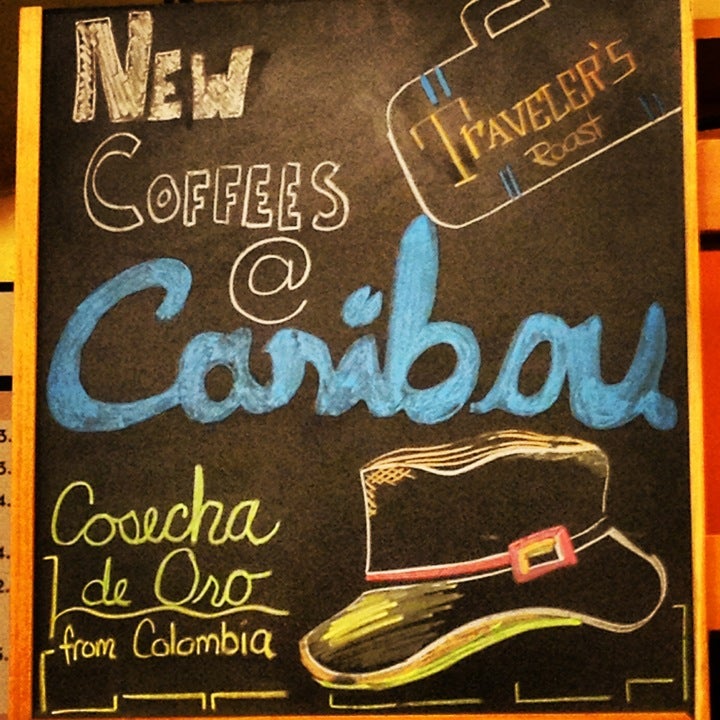 NEW
COFFEES
@
Caribou
TRAVELER'S
Roast
Cosecha
de Oro
from Colombia